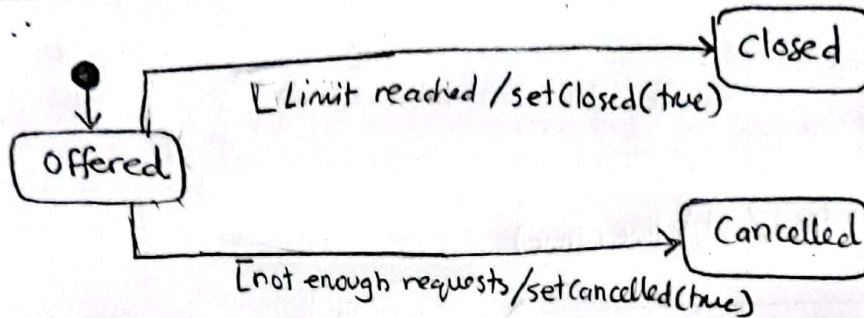 Closed
[Limit reached / setClosed(true)
Offered
Cancelled
[not enough requests/setCancelled(true)